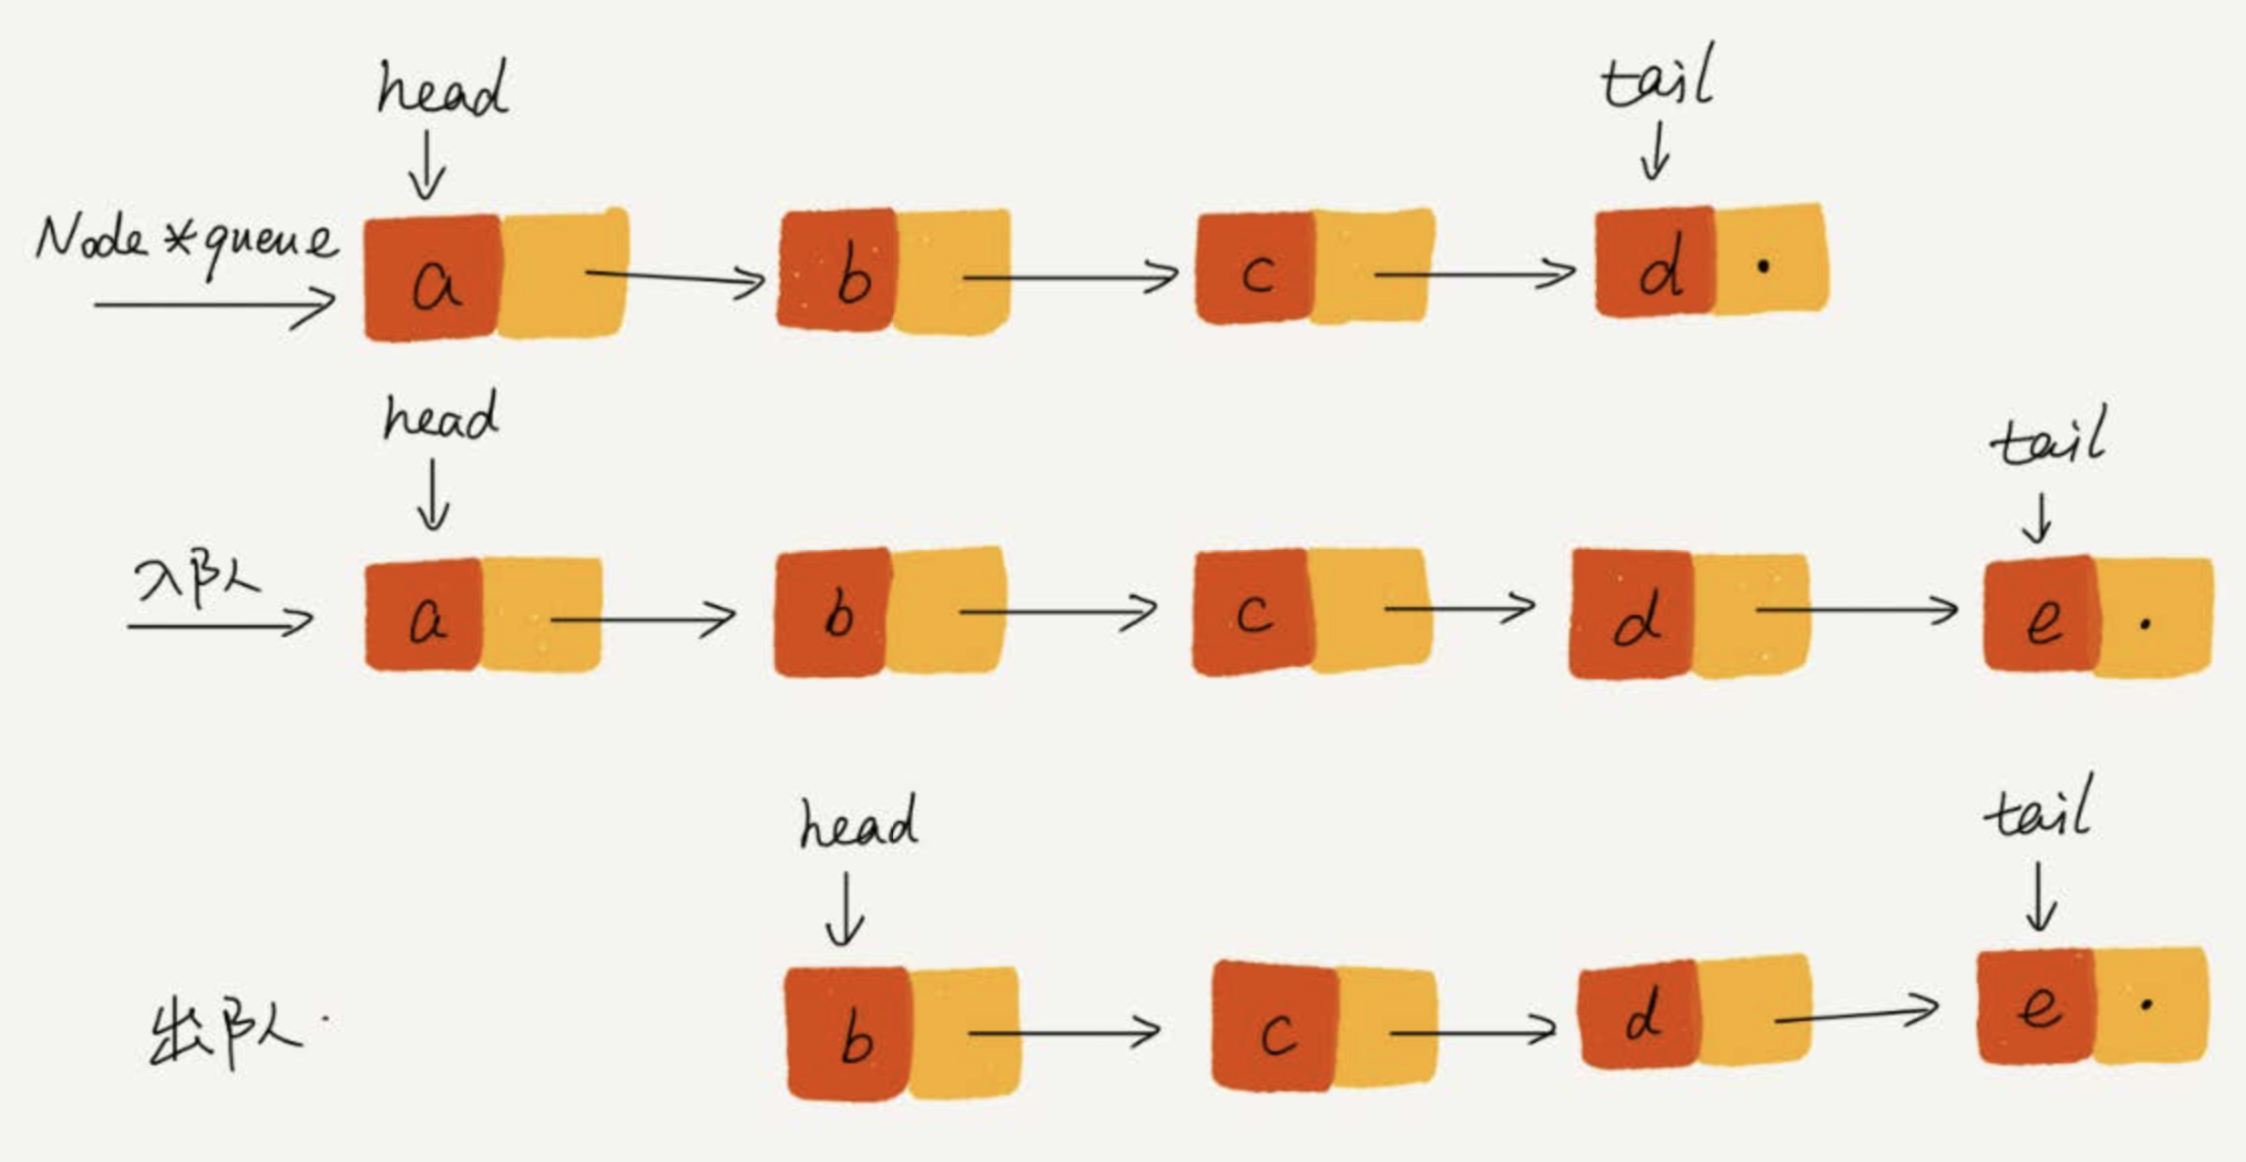 head tail
Node *queue
a b c d
head tail
入队
a b c d e
head tail
出队.
b c d e